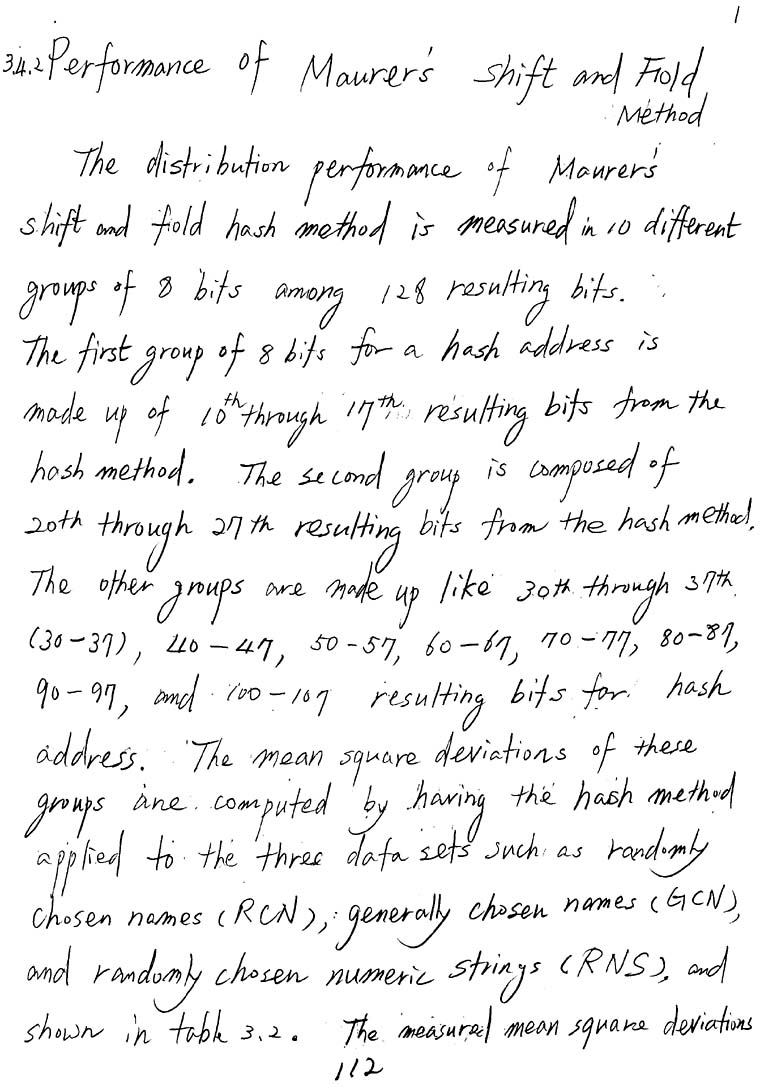 1
3.4.2 Performance of Maurer's shift and Fold
Method
The distribution performance of Maurer's
shift and fold hash method is measured in 10 different
groups of 8 bits among 128 resulting bits.
The first group of 8 bits for a hash address is
made up of 10th through 17th resulting bits from the
hash method. The second group is composed of
20th through 27th resulting bits from the hash method.
The other groups are made up like 30th through 37th
(30-37), 40-47, 50-57, 60-67, 70-77, 80-87,
90-97, and 100-107 resulting bits for hash
address. The mean square deviations of these
groups are computed by having the hash method
applied to the three data sets such as randomly
chosen names (RCN), generally chosen names (GCN),
and randomly chosen numeric strings (RNS), and
shown in table 3.2. The measured mean square deviations
112